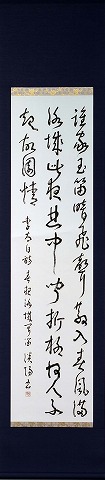 誰家玉笛暗飛聲散入春風滿
洛城此夜曲中聞折柳何人不
起故園情 李太白詩 春夜洛城聞笛